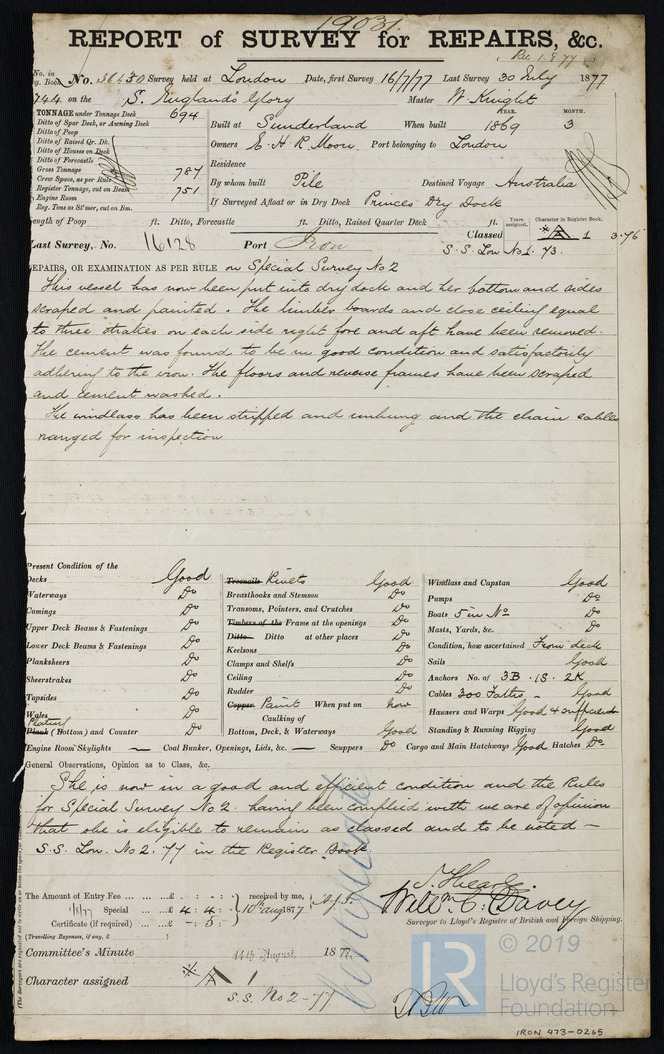 1903.
REPORT of SURVEY for REPAIRS, &c.
Rec 1 8 77
No. in Reg. Book No. 36430 Survey held at London Date, first Survey 16/7/77 Last Survey 30 July 1877
744 on the S. England's Glory Master W Knight
TONNAGE under Tonnage Deck 694
Ditto of Spar Deck, or Awning Deck
Ditto of Poop
Ditto of Raised Qr. Dk.
Ditto of Houses on Deck
Ditto of Forecastle
Gross Tonnage 787
Crew Space, as per Rule
Register Tonnage, cut on Beam 751
Engine Room
Reg. Tons as St'mer, cut on Bm.
YEAR. MONTH.
Built at Sunderland When built 1869 3
Owners E. H. R. Moore Port belonging to London
Residence
By whom built Pile Destined Voyage Australia
If Surveyed Afloat or in Dry Dock Princes Dry Dock
Length of Poop ft. Ditto, Forecastle ft. Ditto, Raised Quarter Deck ft.
Years assigned. Character in Register Book.
Last Survey, No. 16128 Port Iron Classed A 1 3.76
S. S. Lon No 1. 73.
REPAIRS, OR EXAMINATION AS PER RULE on Special Survey No 2
This vessel has now been put into dry dock and her bottom and sides
scraped and painted. The limber boards and close ceiling equal
to three strakes on each side right fore and aft have been removed.
The cement was found to be in good condition and satisfactorily
adhering to the iron. The floors and reverse frames have been scraped
and cement washed.
The windlass has been stripped and unhung and the chain cables
ranged for inspection
Present Condition of the
Decks Good
Waterways Do
Comings Do
Upper Deck Beams & Fastenings Do
Lower Deck Beams & Fastenings Do
Planksheers Do
Sheerstrakes Do
Topsides Do
Wales
Plating
Plank (Bottom) and Counter Do
Treenails Rivets Good
Breasthooks and Stemson Do
Transoms, Pointers, and Crutches Do
Timbers of the Frame at the openings Do
Ditto Ditto at other places Do
Keelsons Do
Clamps and Shelfs Do
Ceiling Do
Rudder Do
Copper Paint When put on now
Caulking of
Bottom, Deck, & Waterways Good
Windlass and Capstan Good
Pumps Do
Boats 5 in No Do
Masts, Yards, &c. Do
Condition, how ascertained From deck
Sails Good
Anchors No. of 3B. 1S. 2K
Cables 300 Faths - Good
Hawsers and Warps Good & sufficient
Standing & Running Rigging Good
Engine Room Skylights — Coal Bunker, Openings, Lids, &c. — Scuppers Do Cargo and Main Hatchways Good Hatches Do
General Observations, Opinion as to Class, &c.
She is now in a good and efficient condition and the Rules
for Special Survey No 2. having been complied with we are of opinion
that she is eligible to remain as classed and to be noted —
S.S. Lon. No 2. 77 in the Register Book
The Amount of Entry Fee ... £ : - : received by me,
1/8/77 Special ... £ 4 : 4 : 10th Aug 1877
Certificate (if required) ... £ - : 5 :
(Travelling Expenses, if any, £ )
Willm C. Davey
Surveyor to Lloyd's Register of British and Foreign Shipping.
Committee's Minute 14th August, 1877.
Character assigned A 1
S.S. No 2-77
© 2019
LR
Lloyd's Register
Foundation
IRON 473-0265